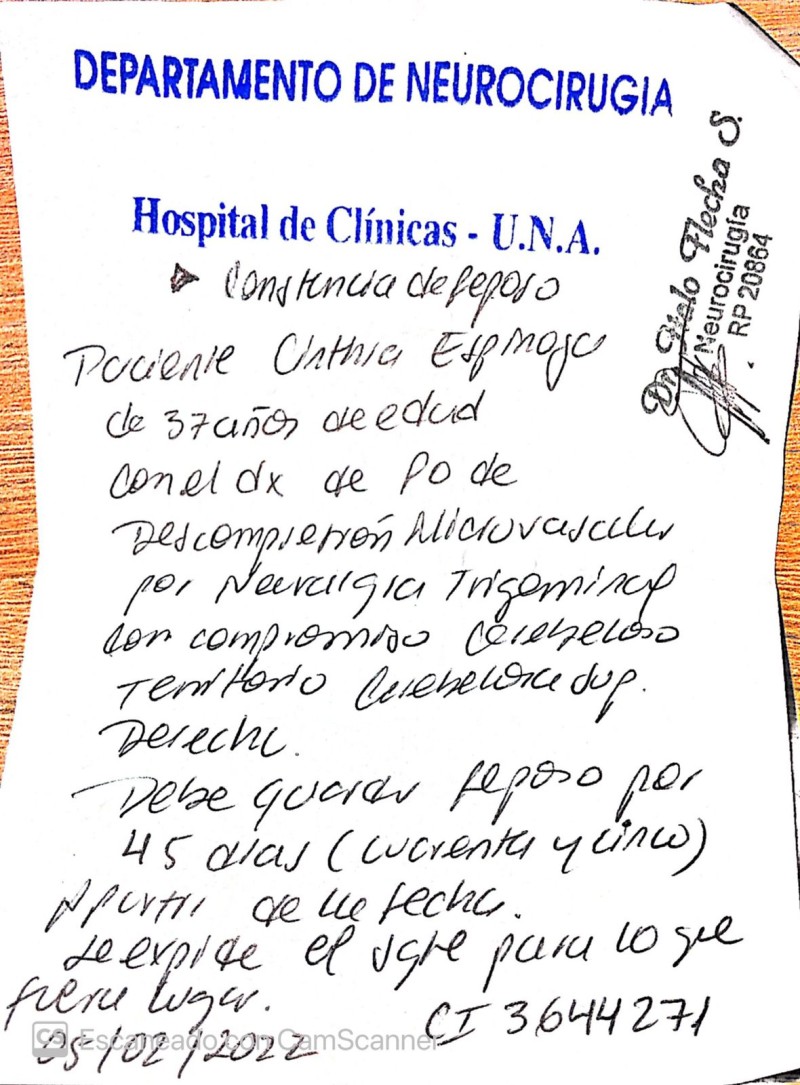 DEPARTAMENTO DE NEUROCIRUGIA
Hospital de Clínicas - U.N.A.
Dr. Flecha S.
Neurocirugía
RP 20864
Constancia de Reposo
Paciente Cinthia Espinoza
de 37 años de edad
con el dx de PO de
Descompresión Microvascular
por Neuralgia Trigeminal
con compromiso Cerebeloso
Territorio Cerebelosa sup.
Derecha.
Debe guardar reposo por
45 dias (cuarenta y cinco)
Apartir de la fecha.
se expide el sgte para lo que
fuera lugar.
CI 3644271
05/02/2022
CS Escaneado con CamScanner